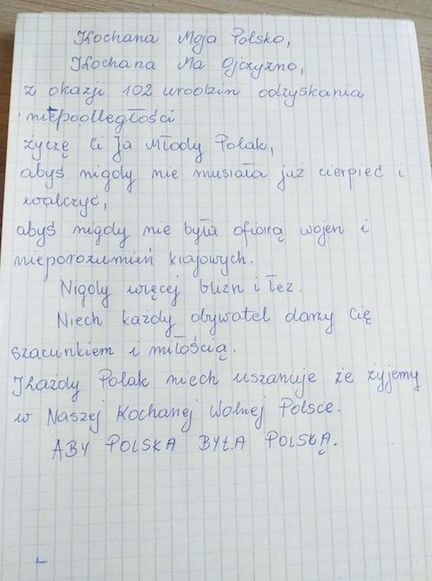 Kochana Moja Polsko,
Kochana Ma Ojczyzno,
z okazji 102 urodzin odzyskania
niepodległości
życzę Ci Ja Młody Polak,
abyś nigdy nie musiała już cierpieć i
walczyć,
abyś nigdy nie była ofiarą wojen i
nieporozumień krajowych.
Nigdy więcej blizn i łez.
Niech każdy obywatel darzy Cię
szacunkiem i miłością.
Każdy Polak niech uszanuje że żyjemy
w Naszej Kochanej Wolnej Polsce.
ABY POLSKA BYŁA POLSKĄ.